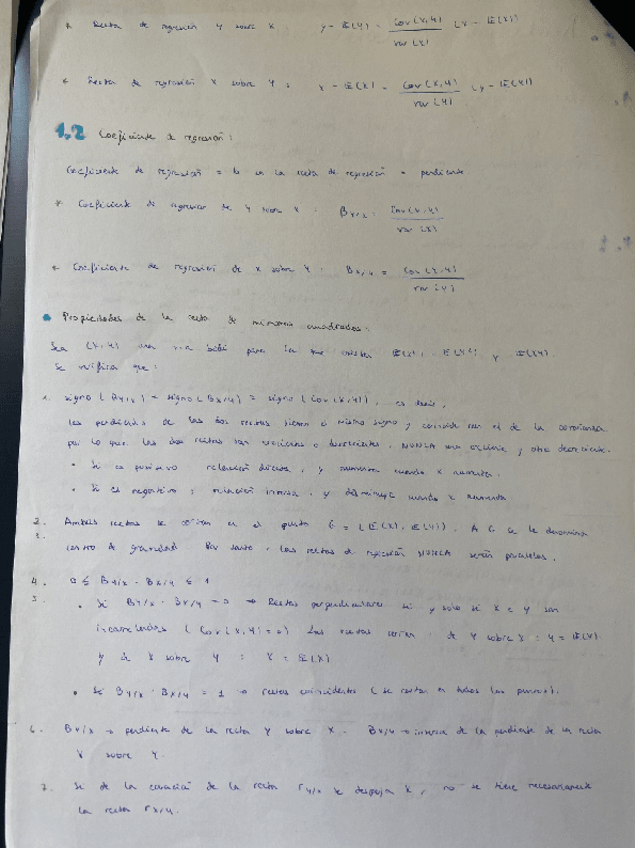 * Recta de regresión Y sobre X y - E(Y) = Cov(X,Y) / var(X) (x - E(X))
* Recta de regresión X sobre Y : x - E(X) = Cov(X,Y) / var(Y) (y - E(Y))
1.2 Coeficiente de regresión:
Coeficiente de regresión = b en la recta de regresión = pendiente
* Coeficiente de regresión de Y sobre X : By/x = Cov(X,Y) / var(X)
* Coeficiente de regresión de X sobre Y : Bx/y = Cov(X,Y) / var(Y)
• Propiedades de la recta de mínimos cuadrados:
Sea (X,Y) una v.a. bidi para la que existen E(X²), E(Y²) y E(XY).
Se verifica que:
1. signo (By/x) = signo (Bx/y) = signo (Cov(X,Y)), es decir,
las pendientes de las dos rectas tienen el mismo signo y coincide con el de la covarianza
por lo que las dos rectas son crecientes o decrecientes, NUNCA una creciente y otra decreciente.
• Si es positivo : relación directa, y aumenta cuando x aumenta.
• Si es negativo : relación inversa, y disminuye cuando x aumenta
2. Ambas rectas se cortan en el punto G = (E(X), E(Y)). A G se le denomina
3. centro de gravedad. Por tanto, las rectas de regresión NUNCA serán paralelas.
4. 0 ≤ By/x · Bx/y ≤ 1
5. • Si By/x · Bx/y = 0 → Rectas perpendiculares si y solo si X e Y son
incorreladas (Cov(X,Y) = 0) Las rectas serían : de Y sobre X : y = E(Y)
y de X sobre Y : x = E(X)
• Si By/x · Bx/y = 1 → rectas coincidentes (se cortan en todos los puntos).
6. By/x → pendiente de la recta Y sobre X. Bx/y → inversa de la pendiente de la recta
X sobre Y.
7. Si de la ecuación de la recta ry/x se despeja X, no se tiene necesariamente
la recta rx/y.